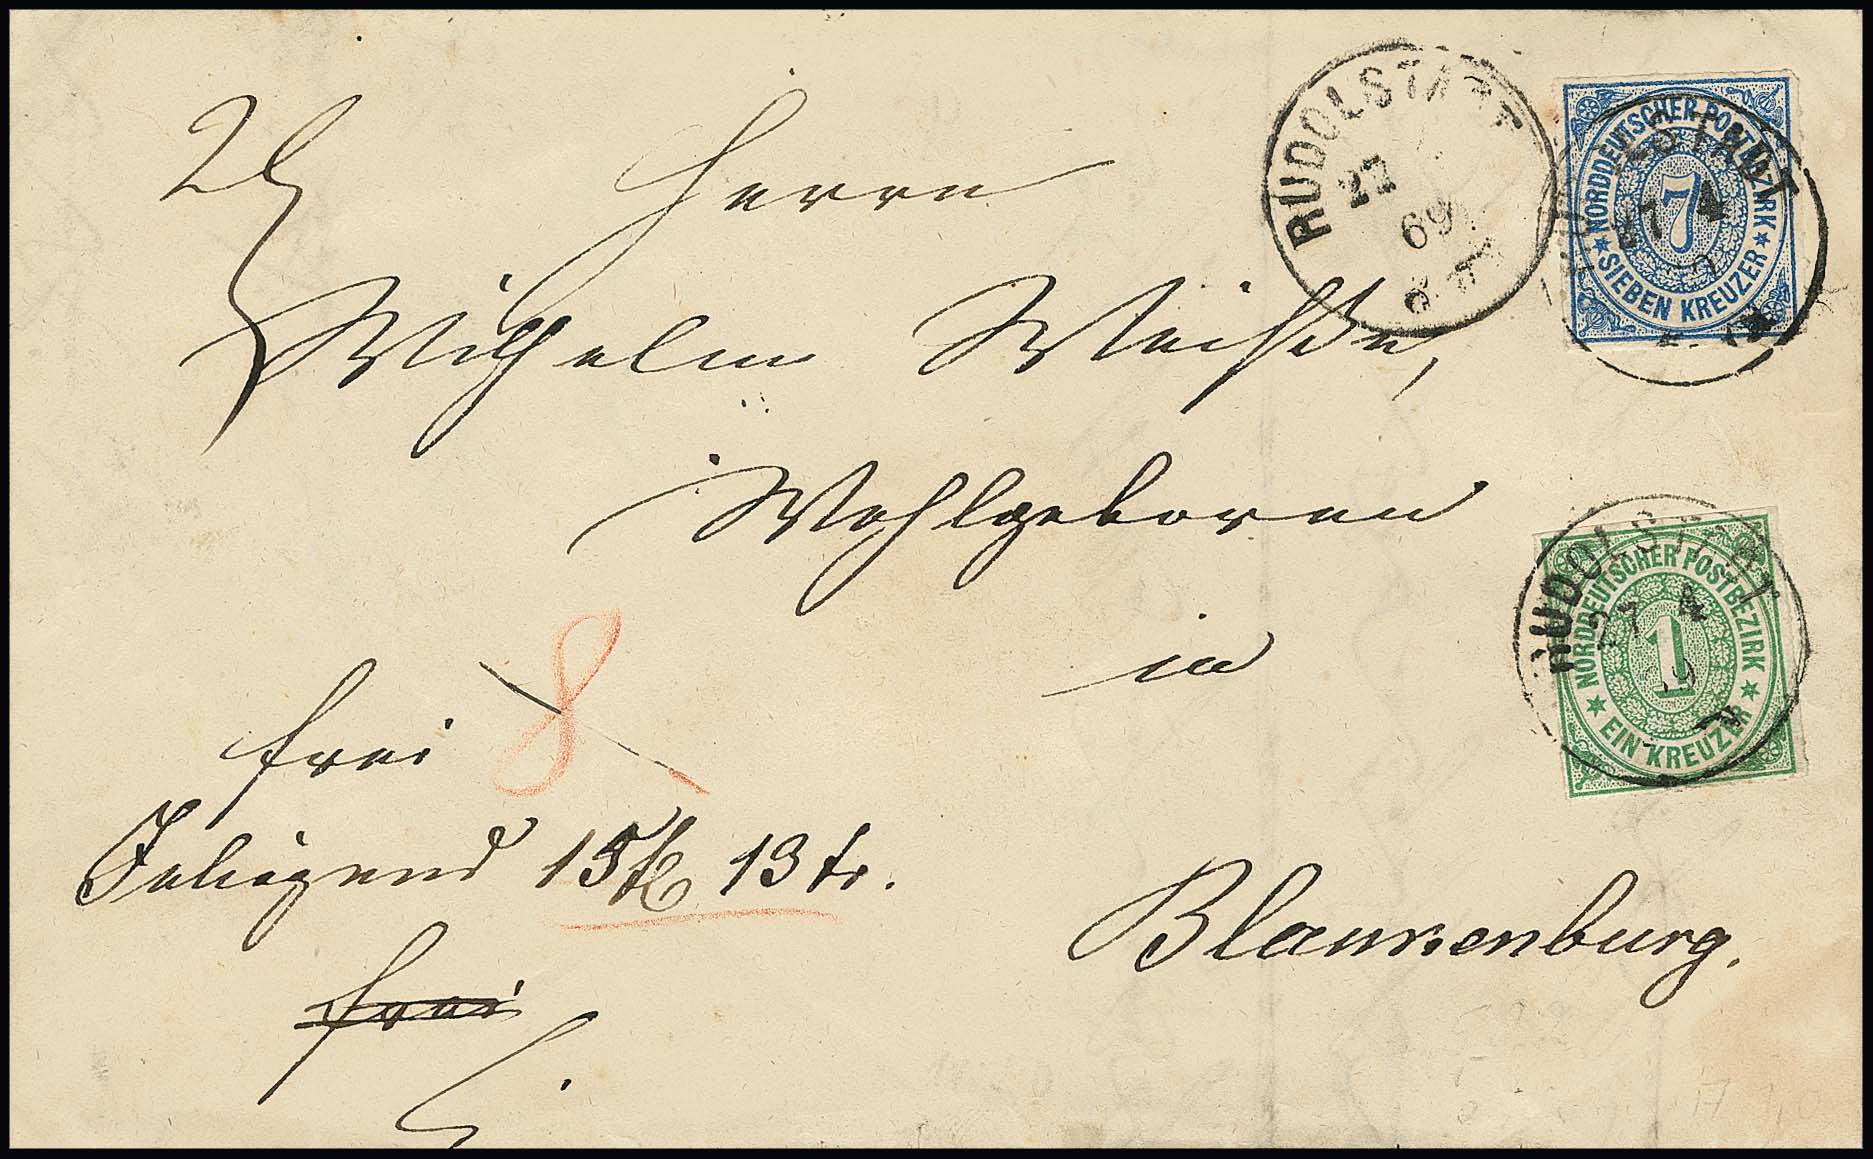 Herrn
Wilhelm Weiße,
Wohlgeboren
in
Blankenburg.
frei 8
Inliegend 15 fl 13 kr.
frei
RUDOLSTADT
27
69
NORDDEUTSCHER POSTBEZIRK
7
SIEBEN KREUZER
RUDOLSTADT
27 4
NORDDEUTSCHER POSTBEZIRK
1
EIN KREUZER
RUDOLSTADT
27 4